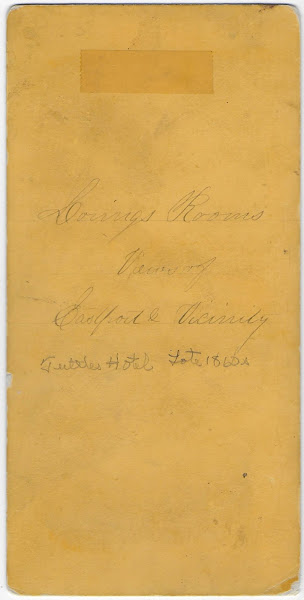 Lorings Rooms
Views of
& Vicinity
Tuttles Hotel Late 1860s